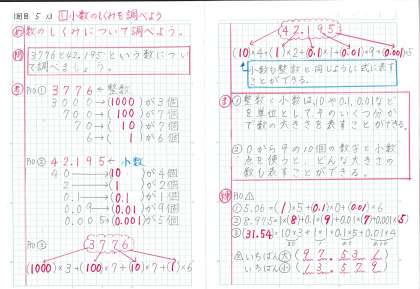 1回目 5/1 1 小数のしくみを調べよう
め 数のしくみについて調べよう。
問 3776と42.195という数について調べましょう。
P10 ① 3776 ← 整数
3000 → (1000)が3個
700 → (100)が7個
70 → (10)が7個
6 → (1)が6個
P10 ② 42.195 ← 小数
40 → (10)が4個
2 → (1)が2個
0.1 → (0.1)が1個
0.09 → (0.01)が9個
0.005 → (0.001)が5個
P10 ③ 3776
(1000)×3+(100)×7+(10)×7+(1)×6
42.195
(10)×4+(1)×2+(0.1)×1+(0.01)×9+(0.001)×5
小数も整数と同じように式に表すことができる。
ま ① 整数と小数は、10や0.1、0.01などを単位としてそのいくつ分かで数の大きさを表すことができる。
② 0から9の10個の数字と小数点を使うと、どんな大きさの数も表すことができる。
練 P10
① 5.06=(1)×5+(0.1)×0+(0.01)×6
② 8.975=1×(8)+0.1×(9)+0.01×(7)+0.001×(5)
③ (31.54)=10×3+1×1+0.1×5+0.01×4
いちばん大 (97.531)
いちばん小 (13.579)